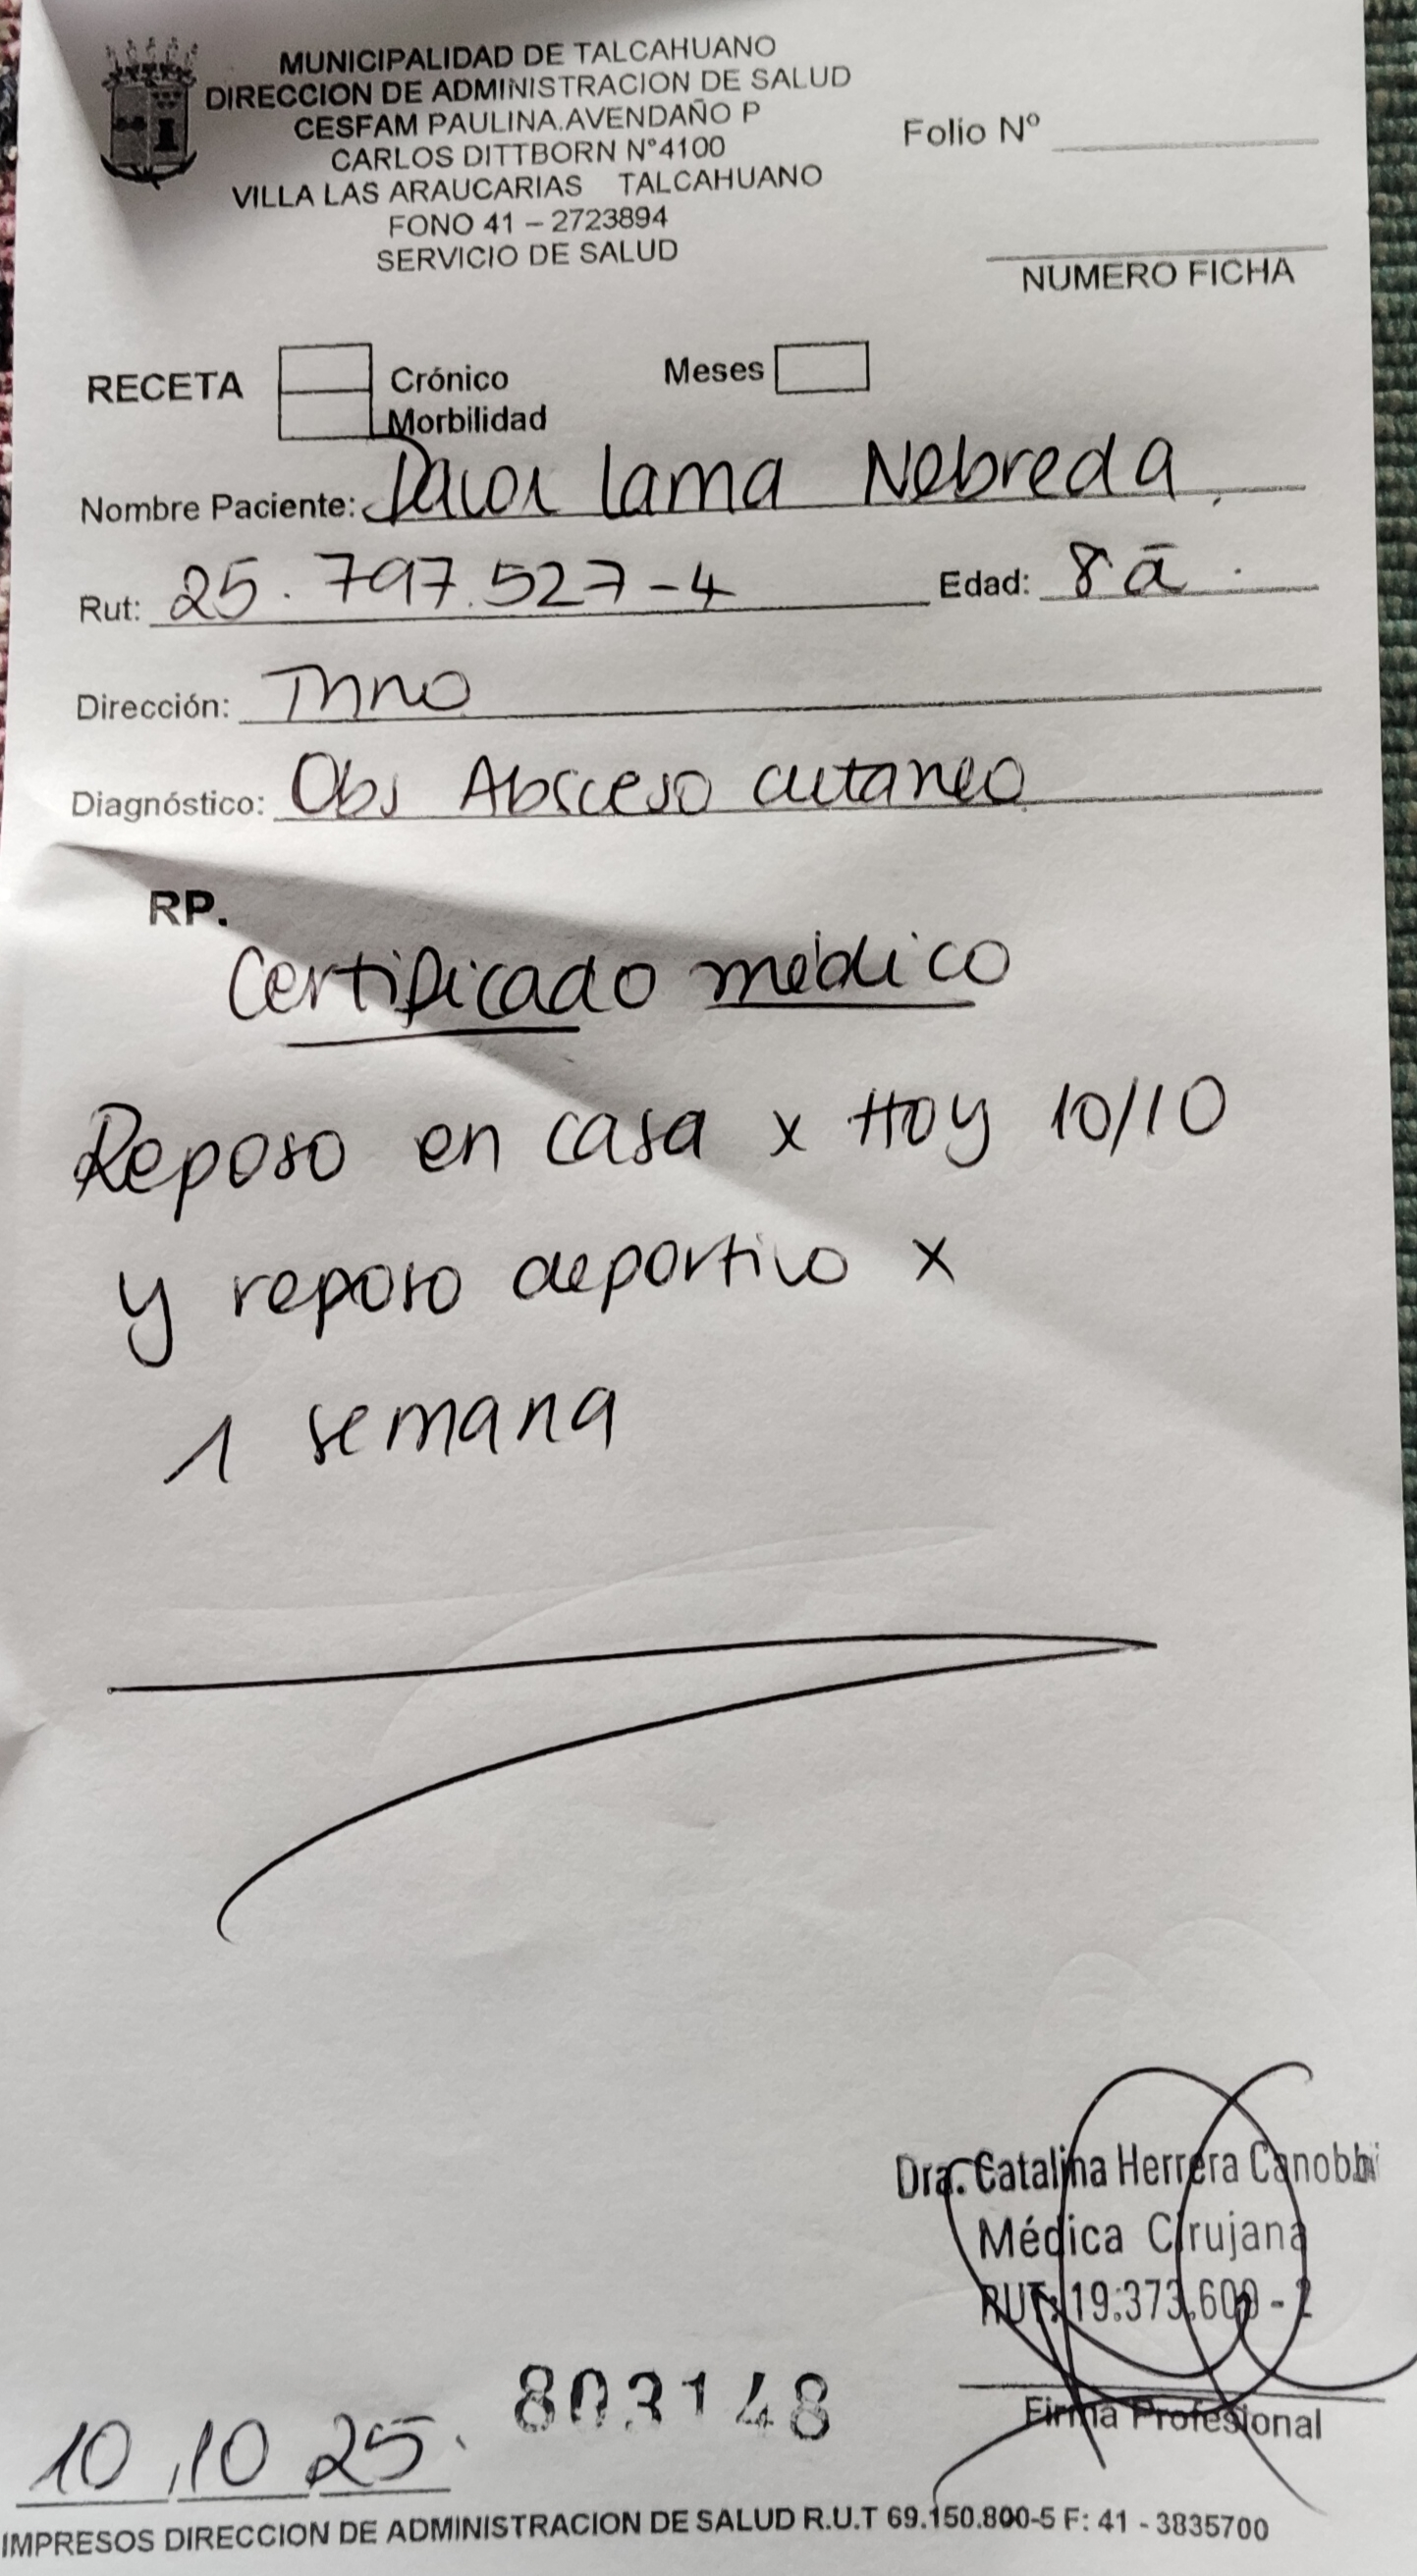 MUNICIPALIDAD DE TALCAHUANO
DIRECCION DE ADMINISTRACION DE SALUD
CESFAM PAULINA.AVENDAÑO P
CARLOS DITTBORN N°4100
VILLA LAS ARAUCARIAS TALCAHUANO
FONO 41 – 2723894
SERVICIO DE SALUD
Folio Nº
NUMERO FICHA
RECETA Crónico Meses
Morbilidad
Nombre Paciente: Lama Nebreda
Rut: 25.797.527-4 Edad: 8a
Dirección: Thno
Diagnóstico: Obs Absceso cutaneo
RP.
Certificado médico
Reposo en casa x Hoy 10/10
y reposo deportivo x
1 semana
Dra. Catalina Herrera Canobbi
Médica Cirujana
RUT: 19.373.600-2
Firma Profesional
803148
10,10 25.
IMPRESOS DIRECCION DE ADMINISTRACION DE SALUD R.U.T 69.150.800-5 F: 41 - 3835700